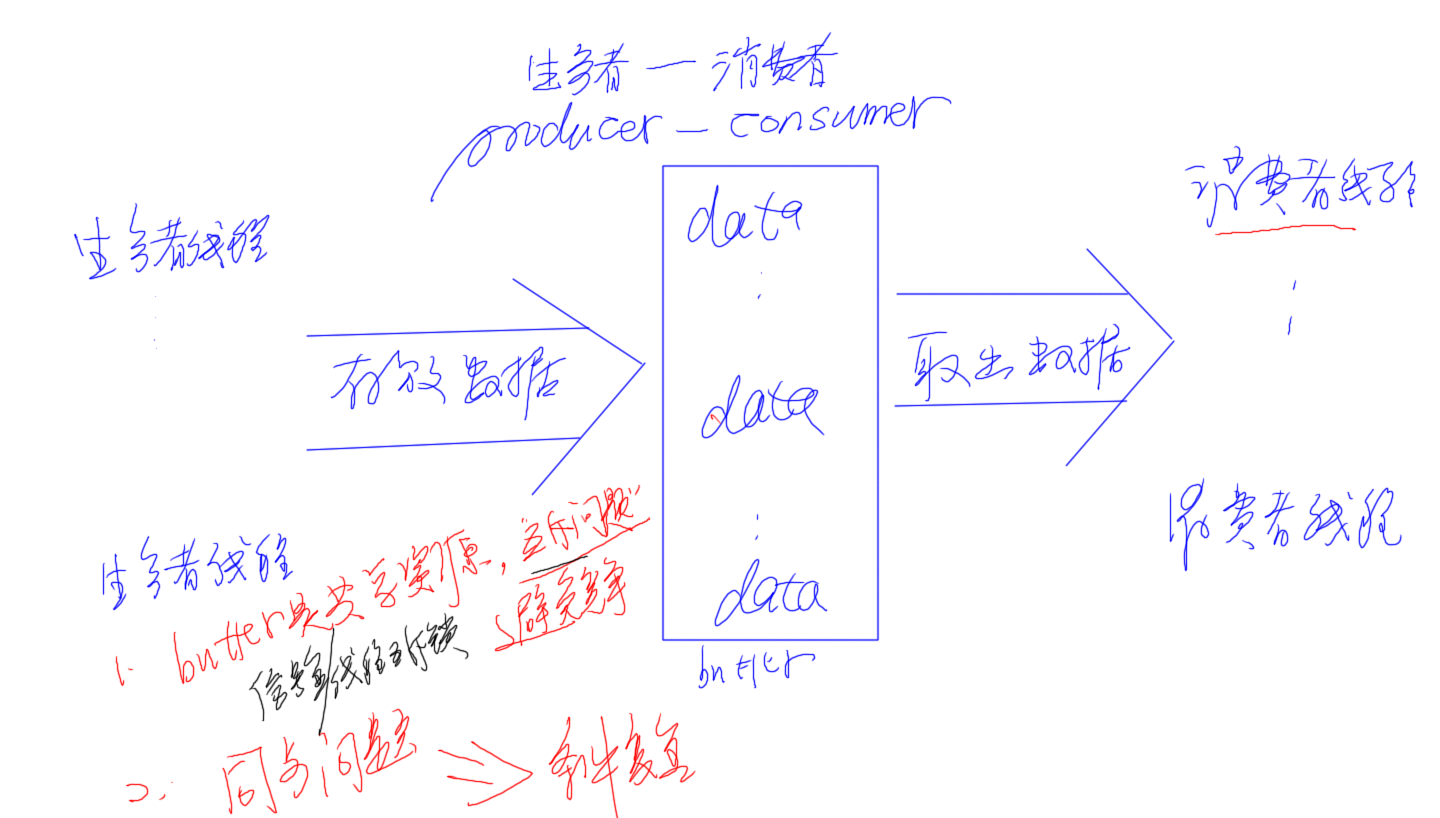 生产者 — 消费者
producer — consumer
生产者线程
存放数据
生产者线程
data
data
data
buffer
取出数据
消费者线程
消费者线程
1. buffer是共享资源，互斥问题
避免竞争
信号量/线程互斥锁
2. 同步问题 => 条件变量